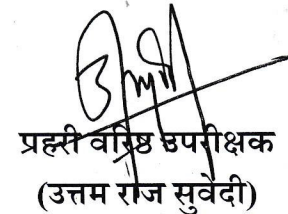 प्रहरी वरिष्ठ उपरीक्षक
(उत्तम राज सुवेदी)